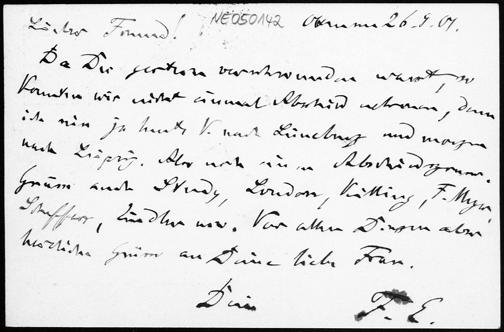 Lieber Freund! NE050142 26.9.01.
Da Du gestern verschwunden warst, so
konnten wir nicht einmal Abschied nehmen, denn
ich bin ja heute V. nach Lüneburg und morgen
nach Leipzig. Also noch einen Abschiedsgruss.
Grüsse auch London, F. Meyer,
Lindner usw. Vor allen Dingen aber
herzliche Grüsse an Deine liebe Frau.
Dein F. E.